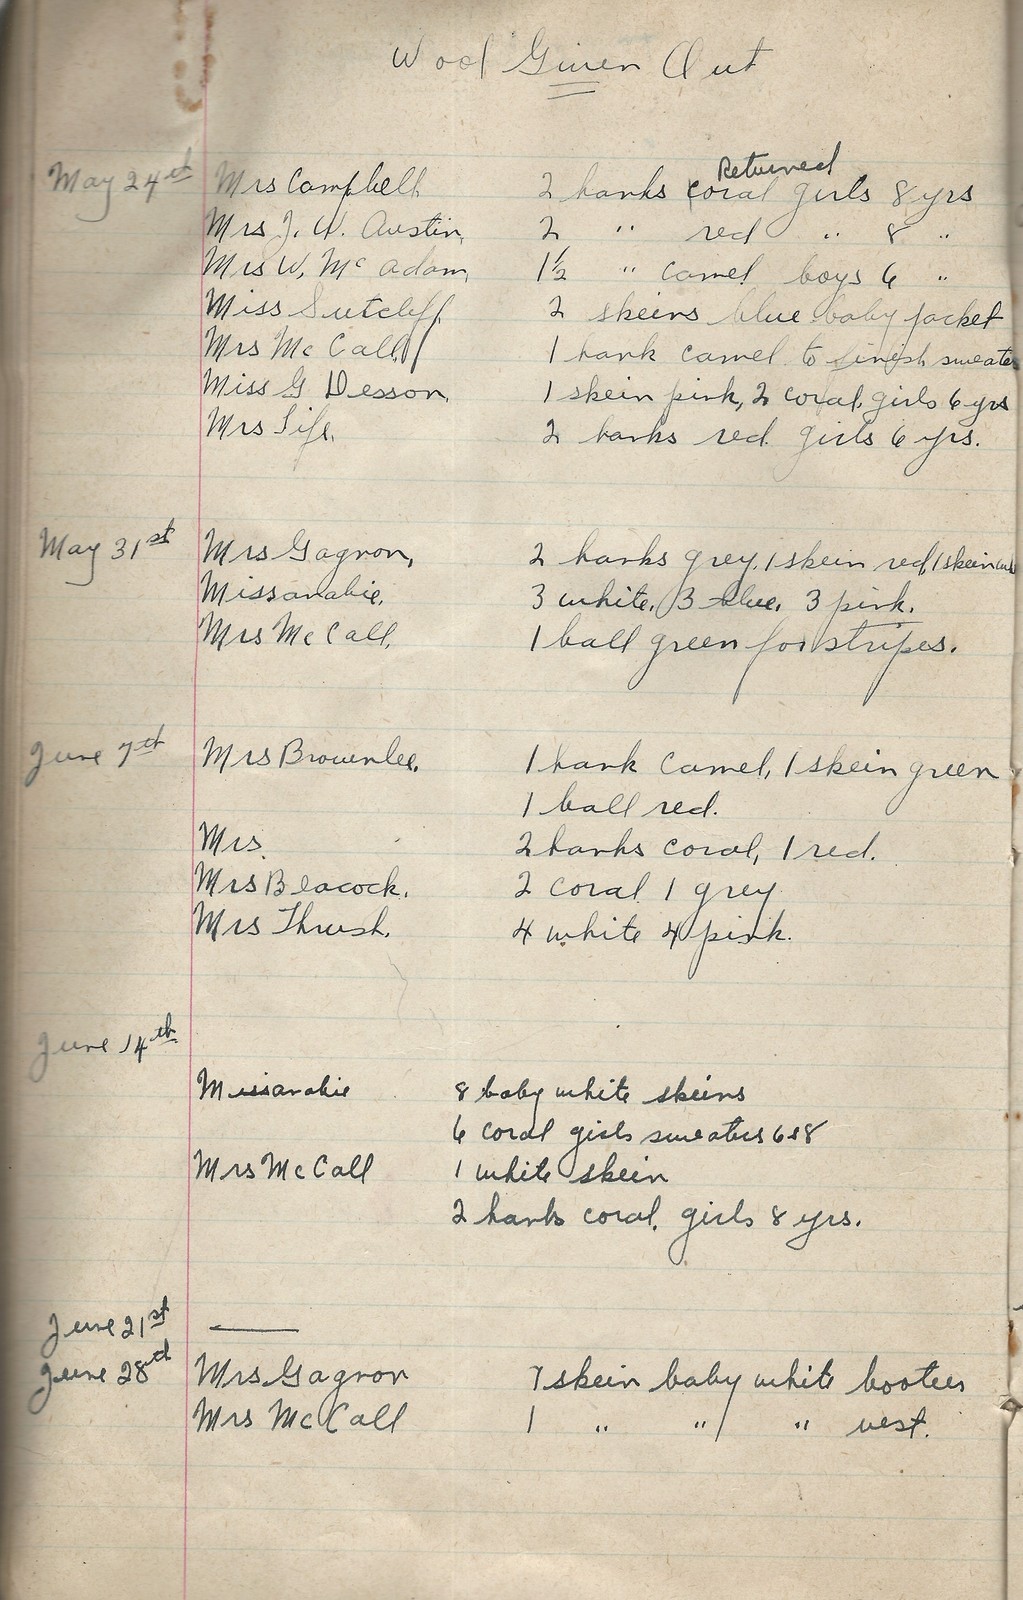 Wool Given Out
Returned
May 24th Mrs Campbell 2 hanks coral girls 8 yrs
Mrs J. W. Austin, 2 " red " 8 "
Mrs W, Mc Adam, 1½ " camel boys 6 "
Miss Sutcliff 2 skeins blue baby jacket
Mrs Mc Call 1 hank camel to finish sweater
Miss G Desson, 1 skein pink, 2 coral, girls 6 yrs
Mrs Fife, 2 hanks red girls 6 yrs.
May 31st Mrs Gagnon, 2 hanks grey, 1 skein red, 1 skein
Missanabie, 3 white, 3 blue, 3 pink.
Mrs McCall, 1 ball green for stripes.
June 7th Mrs Brownlee, 1 hank Camel, 1 skein green
1 ball red.
Mrs. 2 hanks coral, 1 red.
Mrs Beacock. 2 coral 1 grey
Mrs Thrush. 4 white 4 pink.
June 14th
Missanabie 8 baby white skeins
6 coral girls sweaters 6 & 8
Mrs McCall 1 white skein
2 hanks coral, girls 8 yrs.
June 21st ———
June 28th Mrs Gagnon 7 skein baby white bootees
Mrs McCall 1 " " " vest.